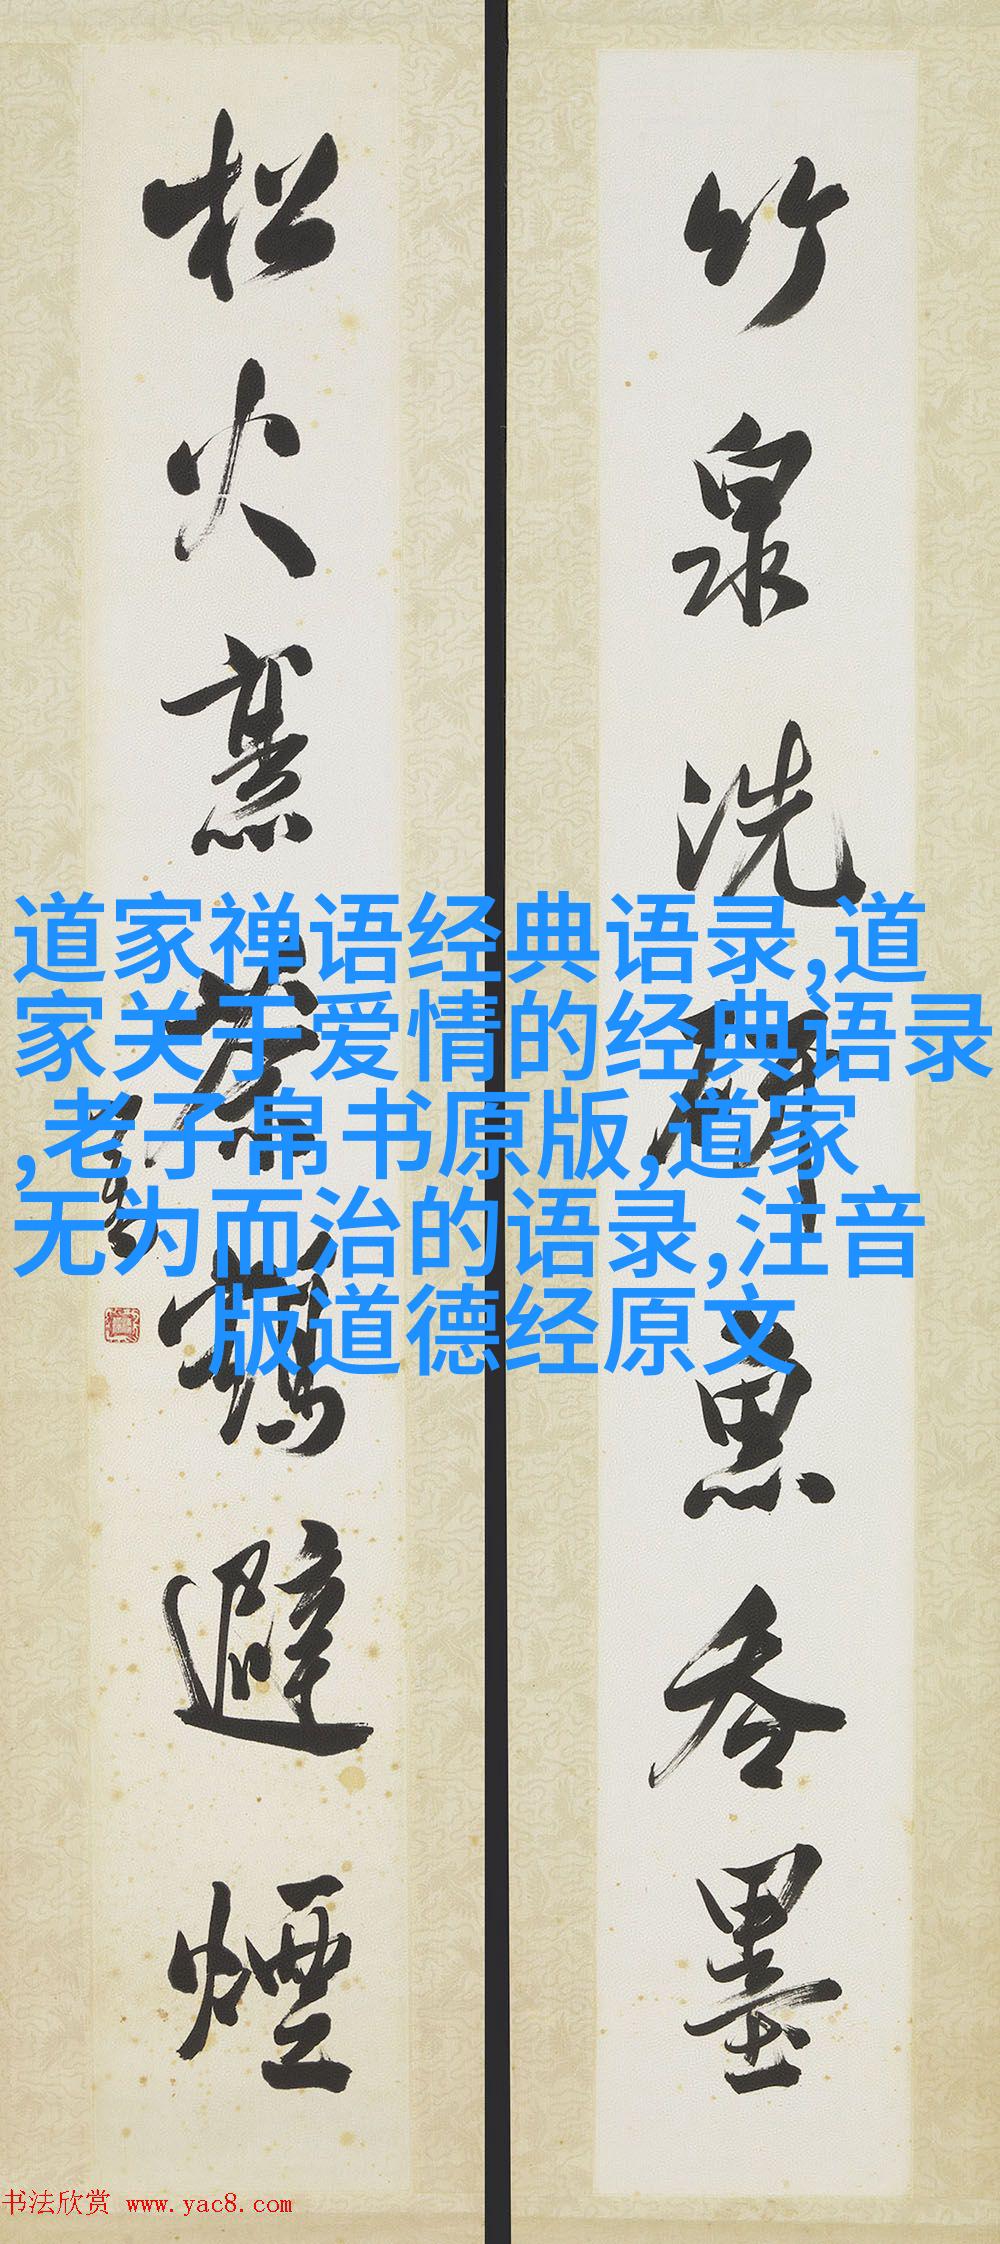 竹泉洗研魚吞墨
松火烹茶鶴避煙
道家禅语经典语录,道
家关于爱情的经典语录
,老子帛书原版,道家
无为而治的语录,注音
版道德经原文
书法欣赏 www.yac8.com